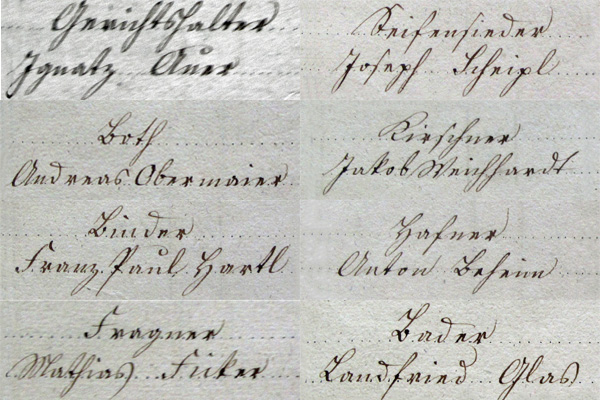 Gerichtshalter
Ignatz Auer
Seifensieder
Joseph Scheipl
Both
Andreas Obermaier
Kirschner
Jakob Weichhardt
Binder
Franz Paul Hartl
Hafner
Anton Beheim
Fragner
Mathias Ficker
Bader
Landfried Glas